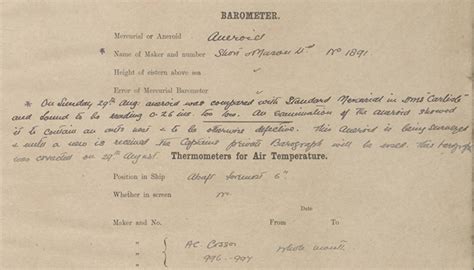 BAROMETER.
Mercurial or Aneroid Aneroid
* Name of Maker and number Short & Mason Ltd No 1891
Height of cistern above sea "
Error of Mercurial Barometer
* On Sunday 29th Aug. aneroid was compared with Standard Mercurial in HMS "Carlisle"
and found to be reading 0.26 ins. too low. An examination of the aneroid showed
it to contain an & to be otherwise defective. This Aneroid is being
& until a new is received the Captains private Barograph will be used. This barograph
was corrected on 29th August
Thermometers for Air Temperature.
Position in Ship Abaft foremost 6"
Whether in screen No
Date.
Maker and No. From To
A.C. Cossor
996 - 997 whole month